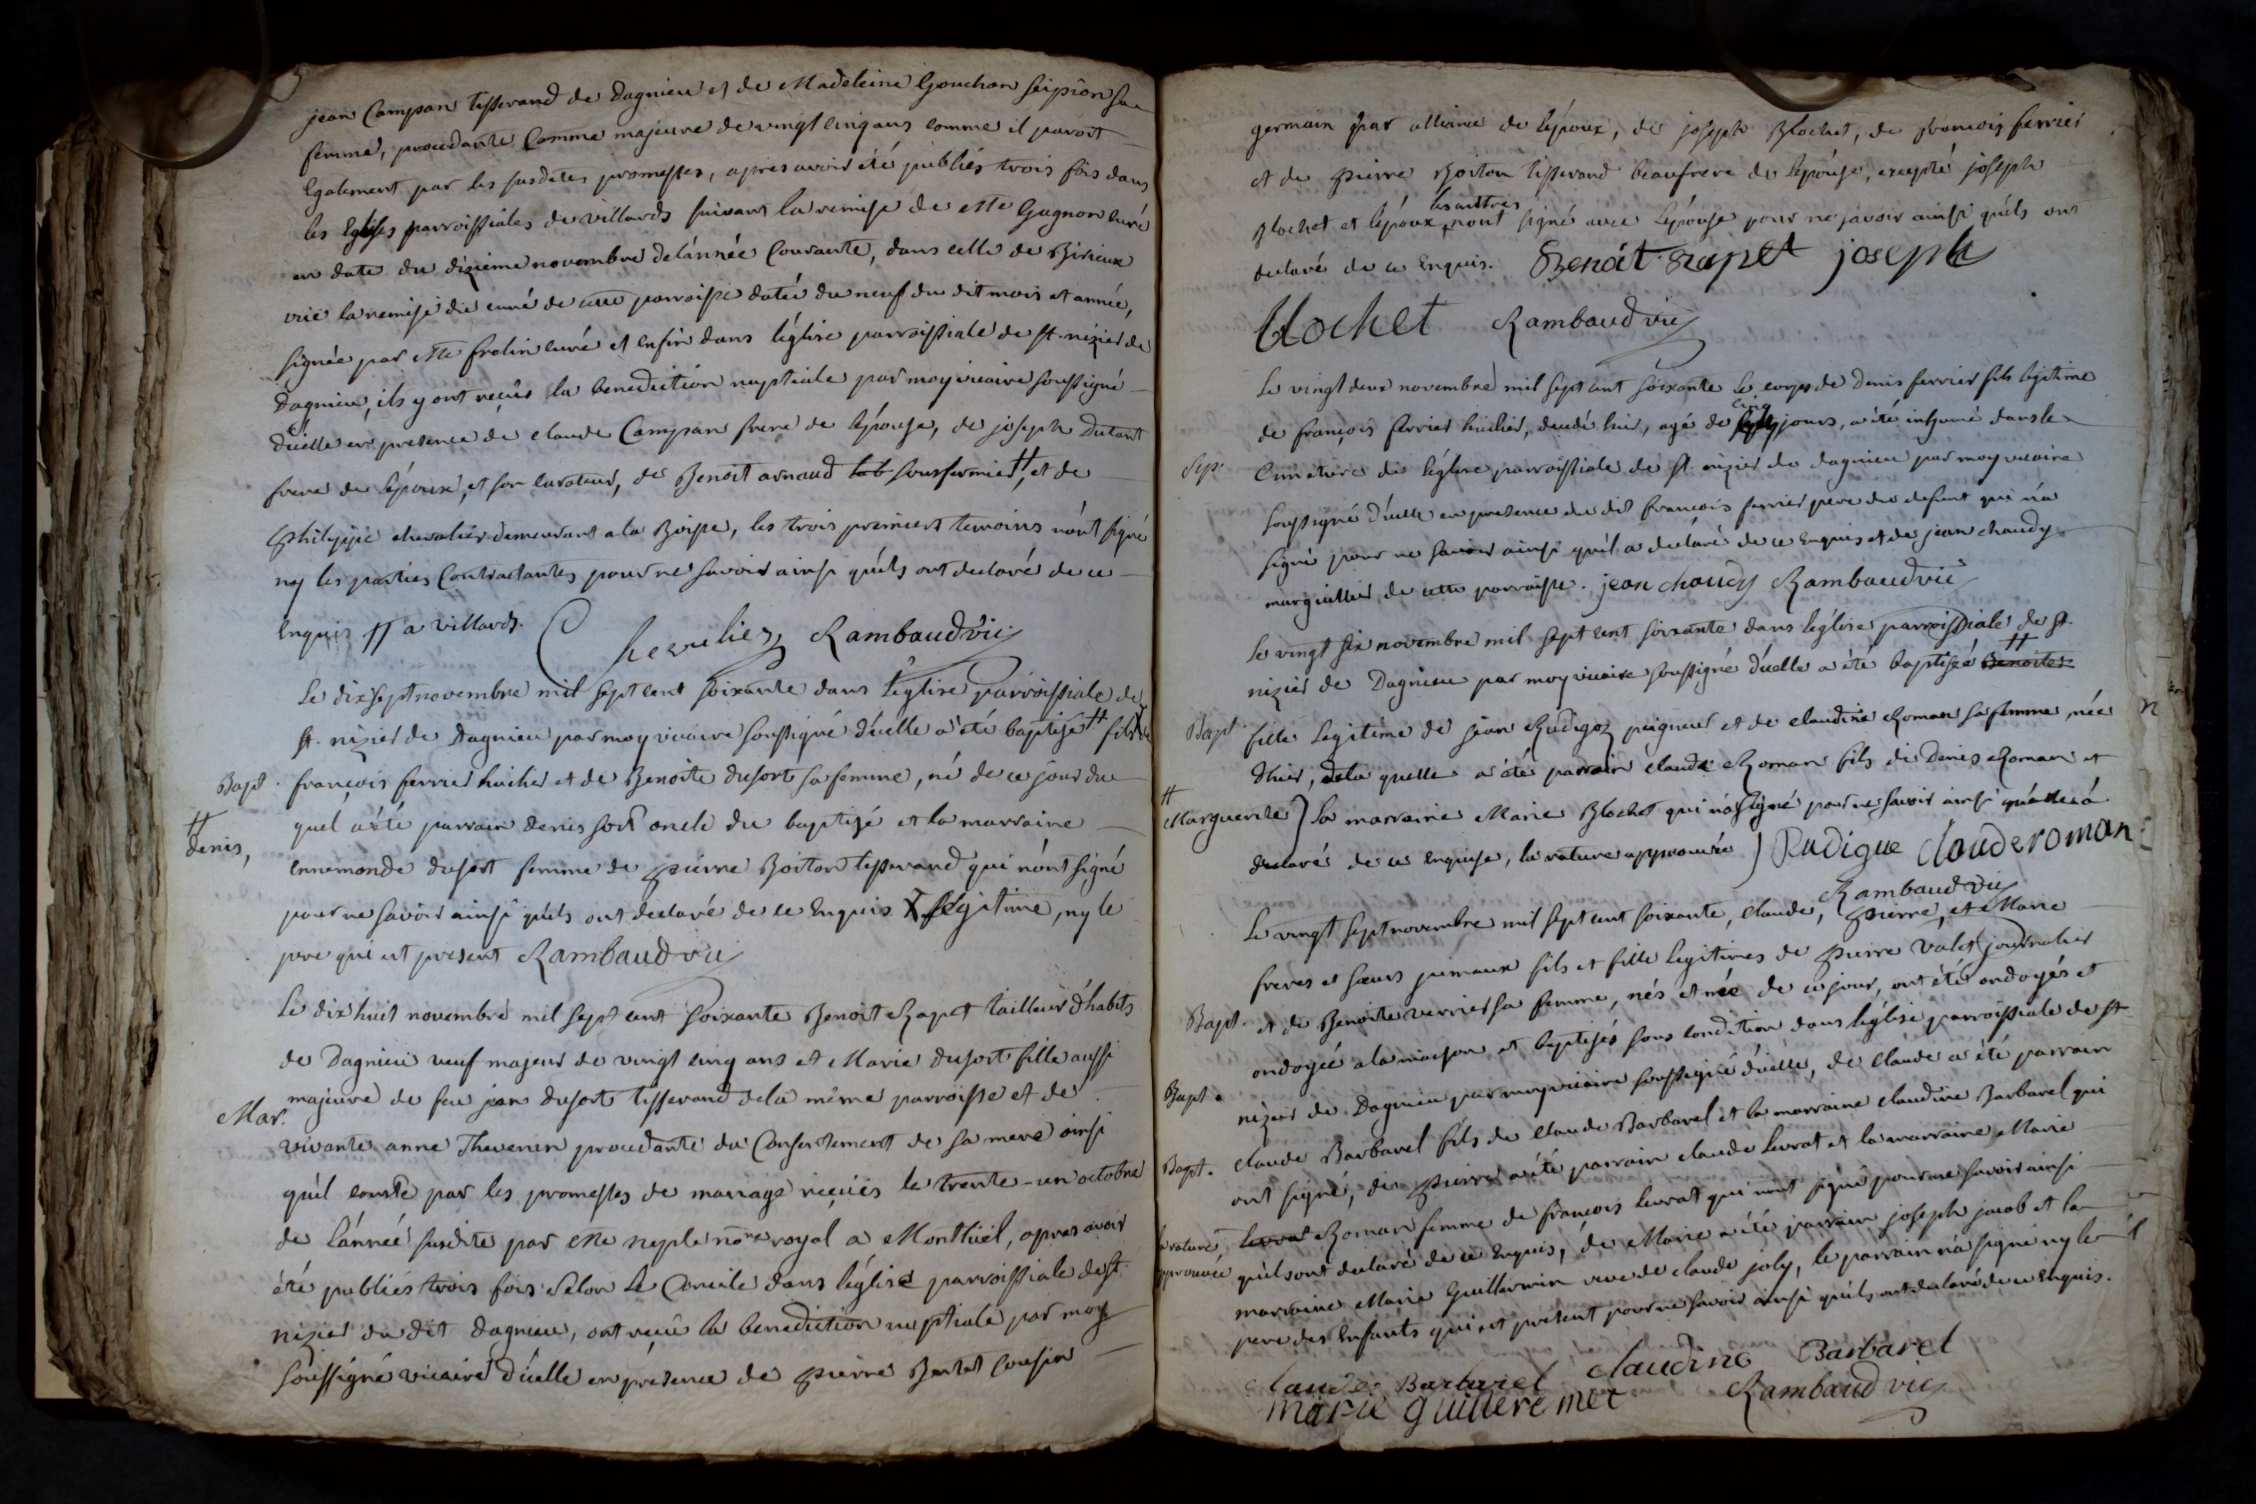 jean Campan tisserand de Dagnieu et de Madeleine Gouchon Scipion sa
femme, procedante Comme majeure de vingt cinq ans comme il paroit
Egalement par les susdites promesses, apres avoir été publiés trois fois dans
les Eglises parroissiales de villards suivant la remise de Mre Gagnon curé
en date du dixième novembre de l'année Courante, dans celle de Birieux
vüe la remise du curé de cette parroisse datée du neuf du dit mois et année,
signée par Mre frolin curé et enfin dans l'église parroissiale de st. nizier de
Dagnieu, ils y ont reçus la benediction nuptiale par moy vicaire soussigné
d'icelle en presence de claude Campan frere de l'épouse, de joseph Dutant
frere de l'époux, et son curateur, de Benoit arnaud lab sousfermier ⧺, et de
Philippe chevalier demeurant a la Boisse, les trois premiers temoins n'ont signé
ny les parties Contractantes pour ne savoir ainsi qu'ils ont declaré de ce
Enquis ⧺ a villards. Chevalier Rambaud vic
Le dix sept novembre mil sept cent soixante dans l'église parroissiale de
st. nizier de Dagnieu par moy vicaire soussigné d'icelle a été baptisé ⧺ fils X de
Bapt. françois ferrier huilier et de Benoite dusort sa femme, né de ce jour du
⧺ denis, quel a été parrain denis sort oncle du baptisé et la marraine
ennemonde dusort femme de pierre Boiton tisserand qui n'ont signé
pour ne savoir ainsi qu'ils ont declaré de ce Enquis X légitime, ny le
pere qui est present Rambaud vic
Le dix huit novembre mil sept cent soixante Benoit Rapet tailleur d'habits
de Dagnieu veuf majeur de vingt cinq ans et Marie dusort fille aussi
majeure de feu jean dusort tisserand de la même parroisse et de
Mar. vivante anne Thevenin procedante du Consentement de sa mere ainsi
qu'il conste par les promesses de mariage reçües le trente-un octobre
de l'année susdite par Mre neple nore royal a Montluel, apres avoir
été publiés trois fois selon le Concile dans l'église parroissiale de st.
nizier du dit Dagnieu, ont reçu la benediction nuptiale par moy
soussigné vicaire d'icelle en présence de pierre Bertet cousin
germain par alliance de l'époux, de joseph Blochet, de françois ferrier
et de pierre Boiton tisserand beaufrere de l'épouse, excepté joseph
Blochet et l'époux les autres n'ont signé avec l'épouse pour ne savoir ainsi qu'ils ont
declaré de ce Enquis. Benoit rapet joseph
blochet Rambaud vic
Le vingt deux novembre mil sept cent soixante le corps de Denis ferrier fils légitime
de françois ferrier huilier, decedé hier, agé de cinq jours, a été inhumé dans le
Sep. Cimetiere de l'église parroissiale de st. nizier de dagnieu par moy vicaire
soussigné d'icelle en presence du dit françois ferrier pere du defunt qui n'a
signé pour ne savoir ainsi qu'il a declaré de ce Enquis et de jean chaudy
marguillier de cette parroisse. jean chaudy Rambaud vic
Le vingt six novembre mil sept cent soixante dans l'église parroissiale de st.
nizier de Dagnieu par moy vicaire soussigné d'icelle a été baptisé ⧺ Benoite
Bapt. fille legitime de jean Rudigoz peigneur et de claudine Roman sa femme, née
d'hier, de la quelle a été parrain claude Roman fils de Denis Roman et
⧺ Marguerite) la marraine Marie Blochet qui n'a signé pour ne savoir ainsi qu'elle a
declaré de ce enquise, la rature approuvée) Rudigue claude roman
Rambaud vic
Le vingt sept novembre mil sept cent soixante, claude, pierre, et Marie
freres et sœurs jumeaux fils et fille legitimes de pierre Valet journalier
Bapt. et de Benoite verrier sa femme, nés et née de ce jour, ont été ondoyés et
ondoyée a la maison et baptisés sous condition dans l'église parroissiale de st
Bapt. nizier de Dagnieu par moy vicaire soussigné d'icelle, de claude a été parrain
claude Barbarel fils de claude Barbarel et la marraine claudine Barbarel qui
Bapt. ont signé, de pierre a été parrain claude Levrat et la marraine Marie
la rature Levrat Roman femme de françois Levrat qui n'ont signé pour ne savoir ainsi
approuvée qu'ils ont declaré de ce Enquis, de Marie a été parrain joseph jacob et la
marraine Marie Guillermin veuve de claude joly, le parrain n'a signé ny le
pere des Enfants qui est present pour ne savoir ainsi qu'ils ont declaré de ce Enquis.
claude Barbarel claudine Barbarel
marie guilleremet Rambaud vic